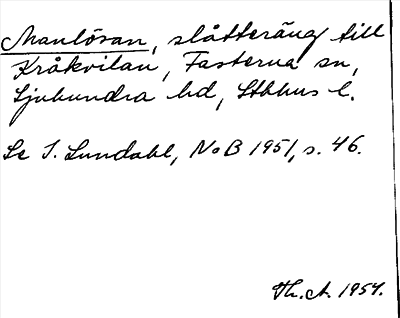 Manlösan, slåtteräng till
Kråkvilan, Fasterna sn,
Sjuhundra hd, Sthlms l.
Se I. Lundahl, NoB 1951, s. 46.
Th. A. 1954.